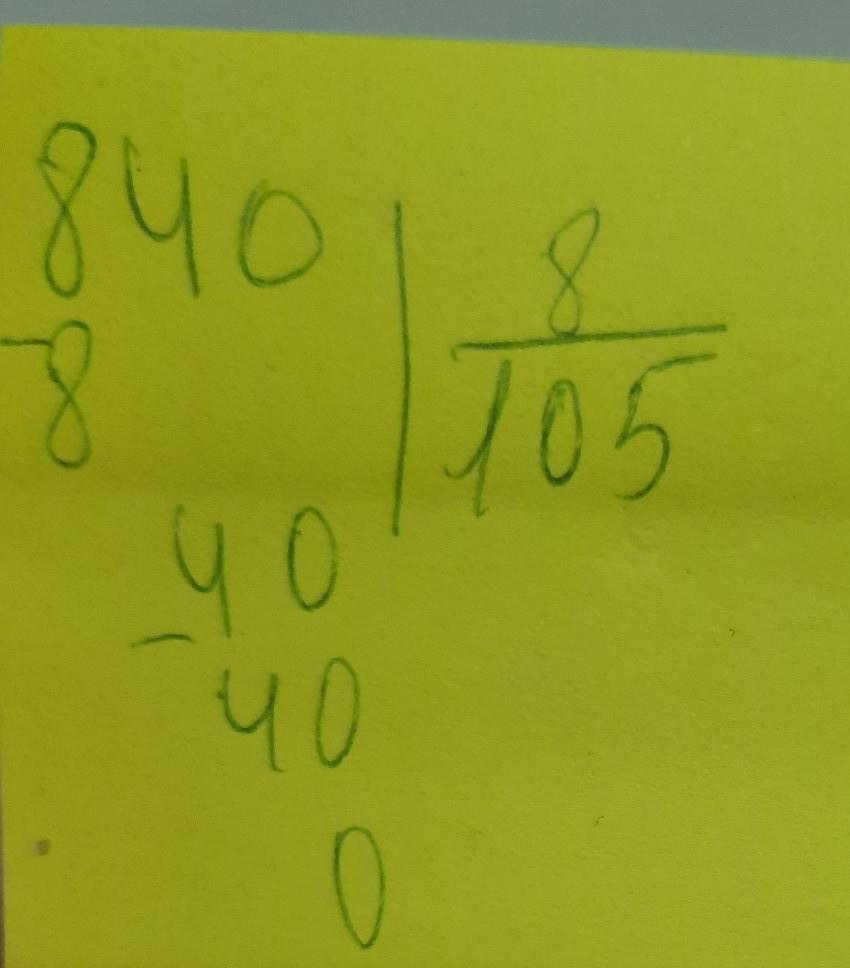 840 | 8
-8 105
40
- 40
0